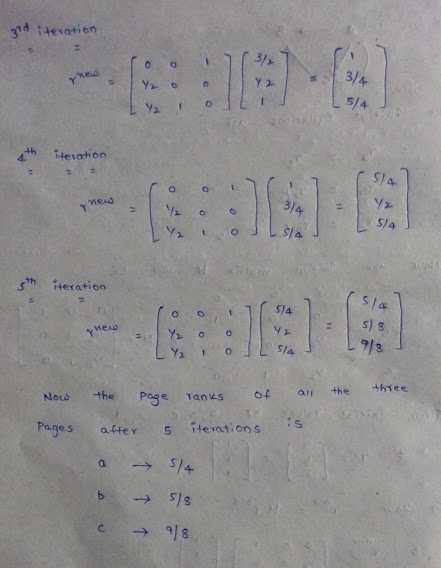 3rd iteration
= =
r new = [ 0 0 1 ] [ 3/2 ] = [ 1 ]
[ 1/2 0 0 ] [ 1/2 ] [ 3/4 ]
[ 1/2 1 0 ] [ 1 ] [ 5/4 ]
4th iteration
= = =
r new = [ 0 0 1 ] [ 1 ] = [ 5/4 ]
[ 1/2 0 0 ] [ 3/4 ] [ 1/2 ]
[ 1/2 1 0 ] [ 5/4 ] [ 5/4 ]
5th iteration
= =
r new = [ 0 0 1 ] [ 5/4 ] = [ 5/4 ]
[ 1/2 0 0 ] [ 1/2 ] [ 5/8 ]
[ 1/2 1 0 ] [ 5/4 ] [ 9/8 ]
Now the page ranks of all the three
pages after 5 iterations is
a → 5/4
b → 5/8
c → 9/8